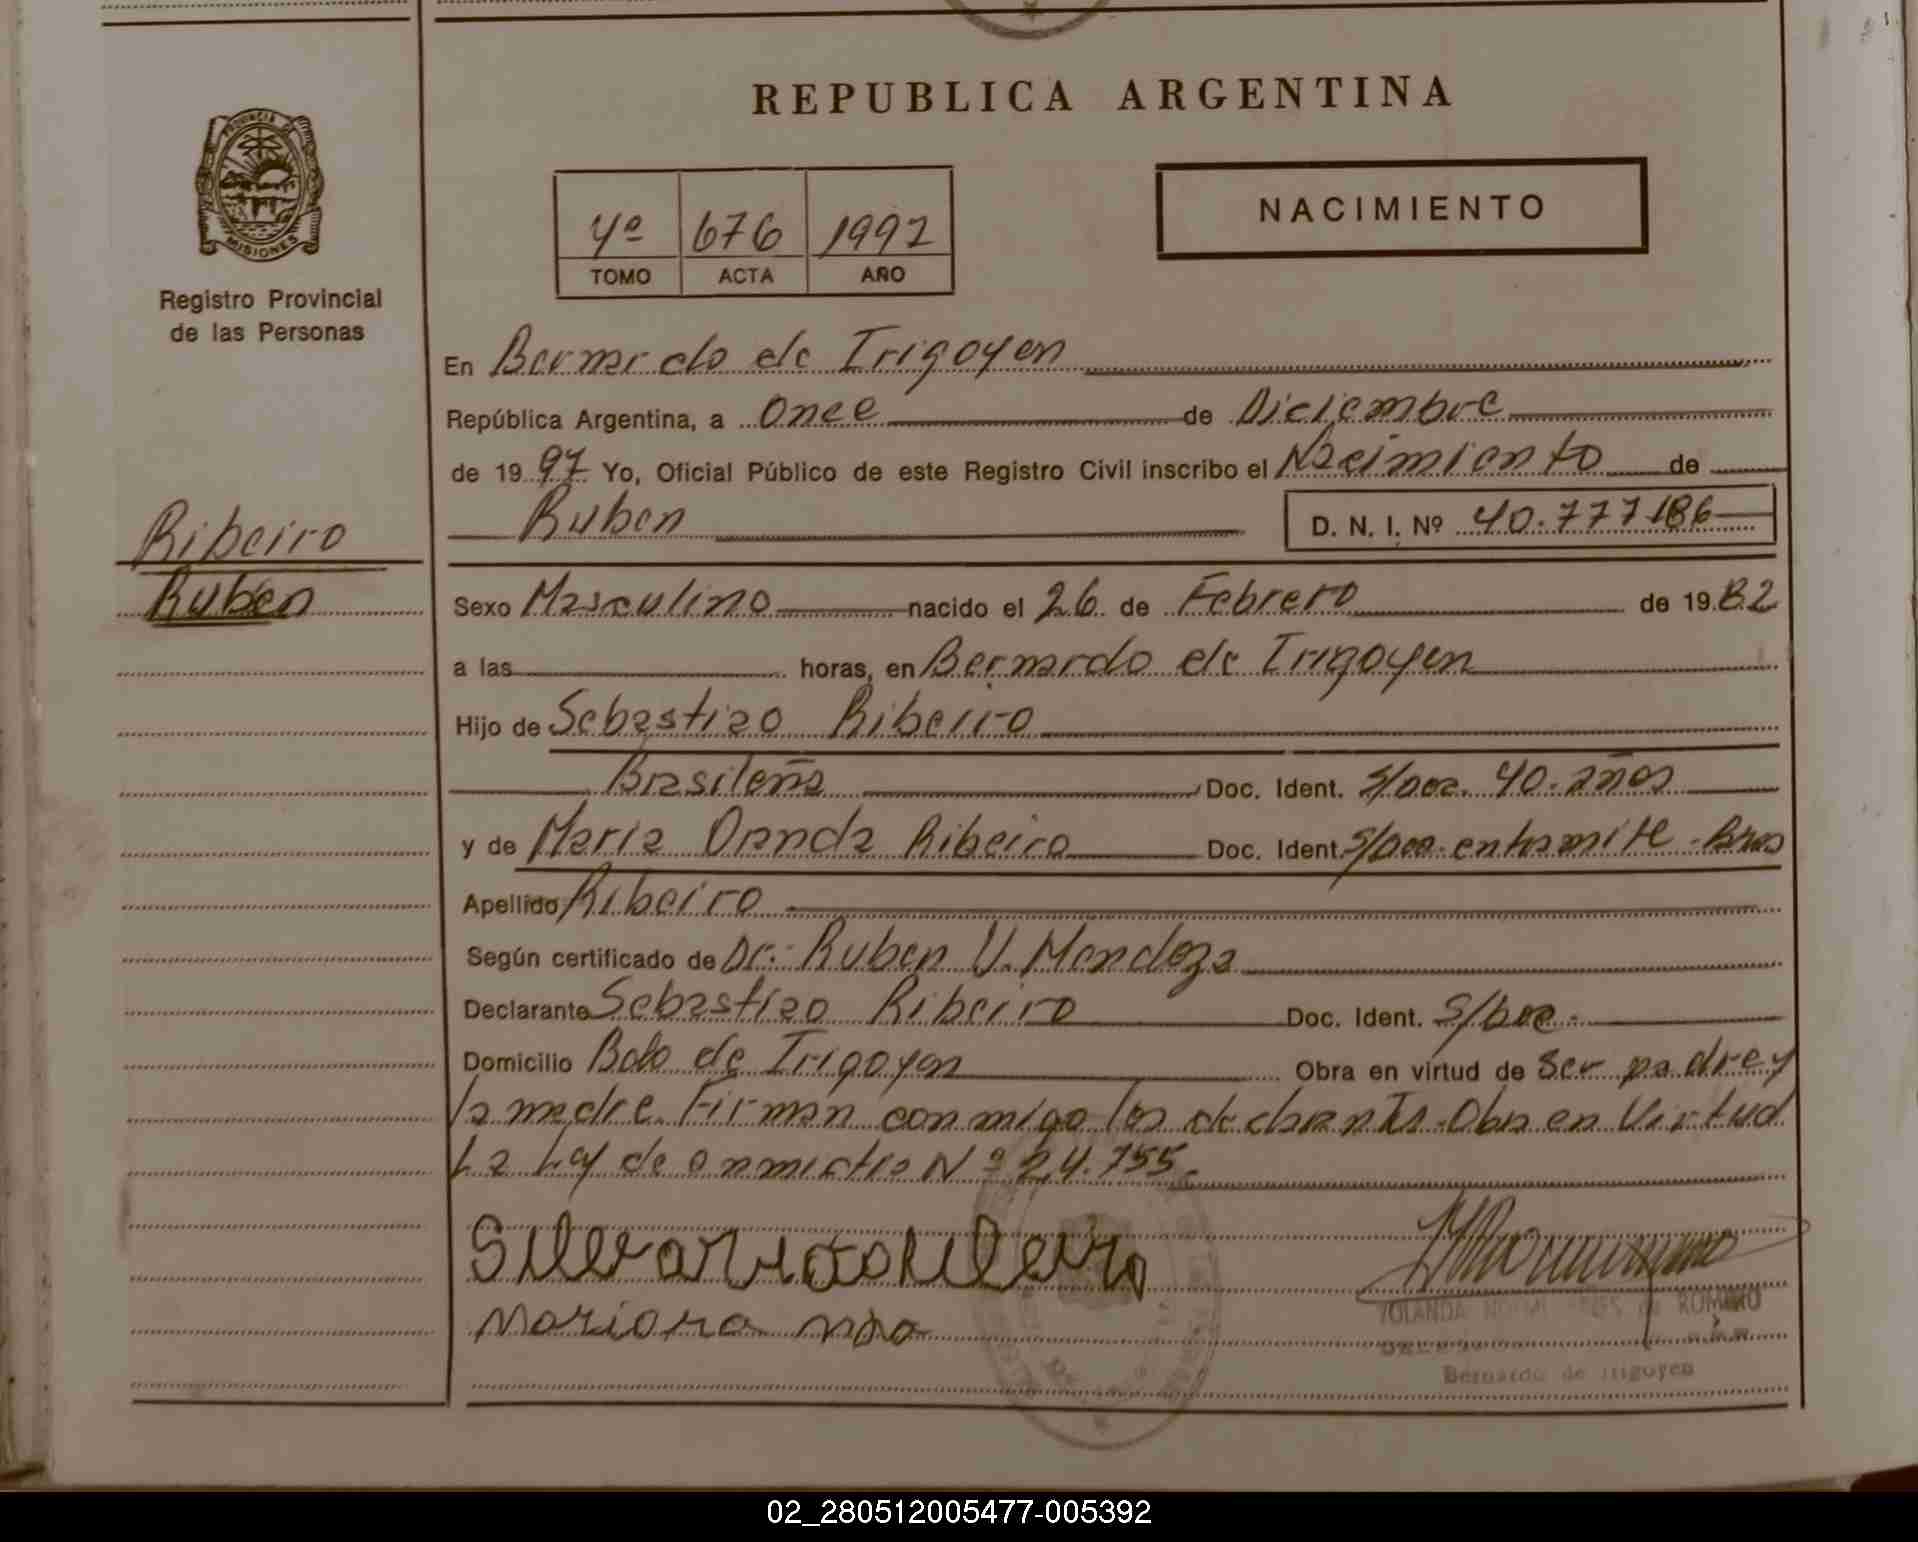 REPUBLICA ARGENTINA
PROVINCIA DE
MISIONES
Registro Provincial
de las Personas
4º 676 1997
TOMO ACTA AÑO
NACIMIENTO
En Bernardo de Irigoyen
República Argentina, a Once de Diciembre
de 19 97 Yo, Oficial Público de este Registro Civil inscribo el Nacimiento de
Ruben D. N. I. Nº 40.777186
Ribeiro
Ruben
Sexo Masculino nacido el 26 de Febrero de 19 82
a las horas, en Bernardo de Irigoyen
Hijo de Sebastiao Ribeiro
Brasileña Doc. Ident. S/Doc. 40. años
y de Maria Oranda Ribeiro Doc. Ident. S/Doc. entramite - Bras
Apellido Ribeiro
Según certificado de Dr. Ruben V. Mendoza
Declarante Sebastiao Ribeiro Doc. Ident. S/Doc.-
Domicilio Bdo de Irigoyen Obra en virtud de ser padre y
la madre. Firman conmigo los declarantes. Obra en Virtud
La Ley de Nº 24.755.
YOLANDA ROMERO
Bernardo de Irigoyen
02_280512005477-005392